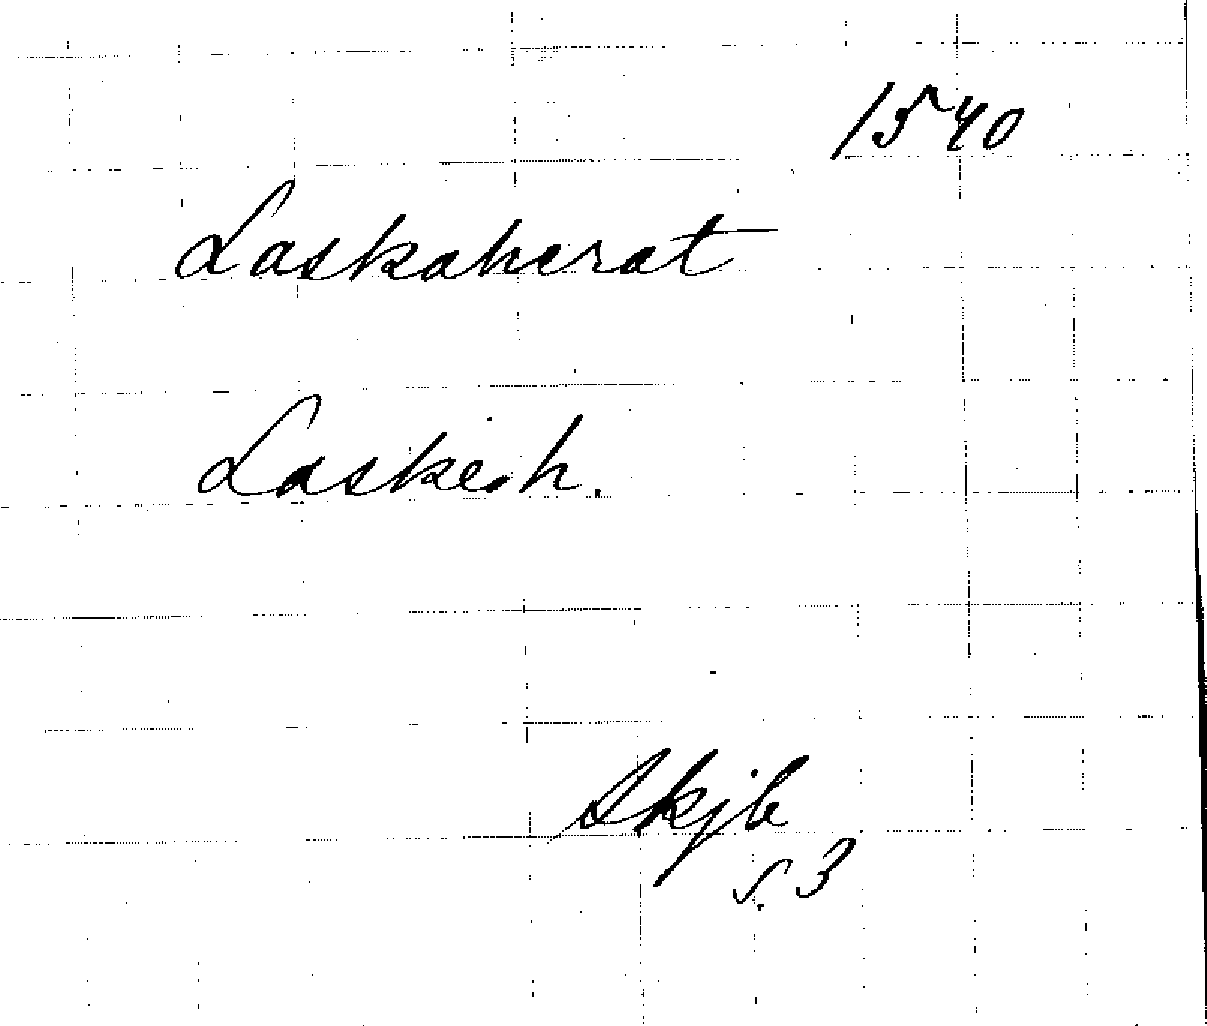 1540
Laskaherat
Laskesh.
Skjb
s. 3